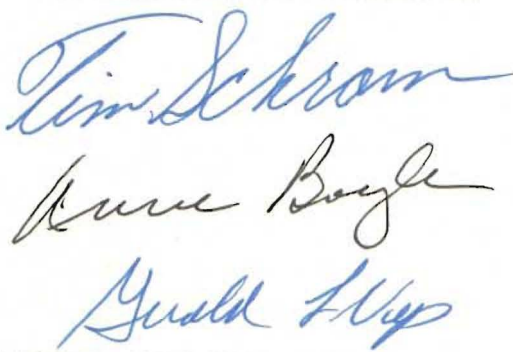 Tim Schram
Anne Boyle
Gerald L